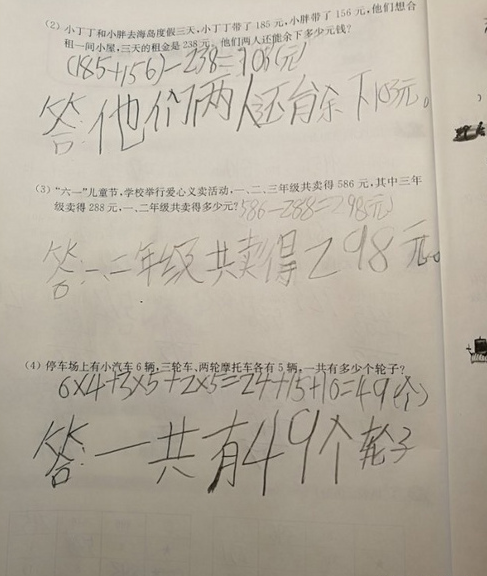 (2) 小丁丁和小胖去海岛度假三天,小丁丁带了 185 元,小胖带了 156 元,他们想合
租一间小屋,三天的租金是 238 元,他们两人还能余下多少元钱?
(185+156)-238=103(元)
答:他们两人还能余下103元。
(3) “六一”儿童节,学校举行爱心义卖活动,一、二、三年级共卖得 586 元,其中三年
级卖得 288 元,一、二年级共卖得多少元? 586-288=298(元)
答:一、二年级共卖得298元。
(4) 停车场上有小汽车 6 辆,三轮车、两轮摩托车各有 5 辆,一共有多少个轮子?
6×4+3×5+2×5=24+15+10=49(个)
答:一共有49个轮子